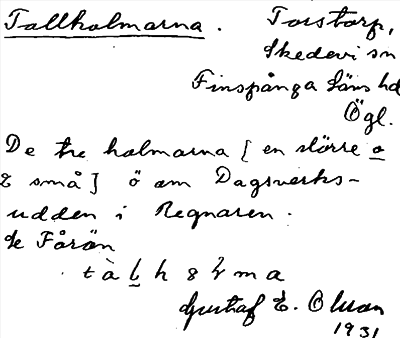 Tallholmarna. Torstorp,
Skedevi sn
Finspånga läns hd
Ögl.
De tre holmarna [en större o
2 små] ö om Dagsverks-
udden i Regnaren.
Se Fårön
Gustaf E. Olson
1931